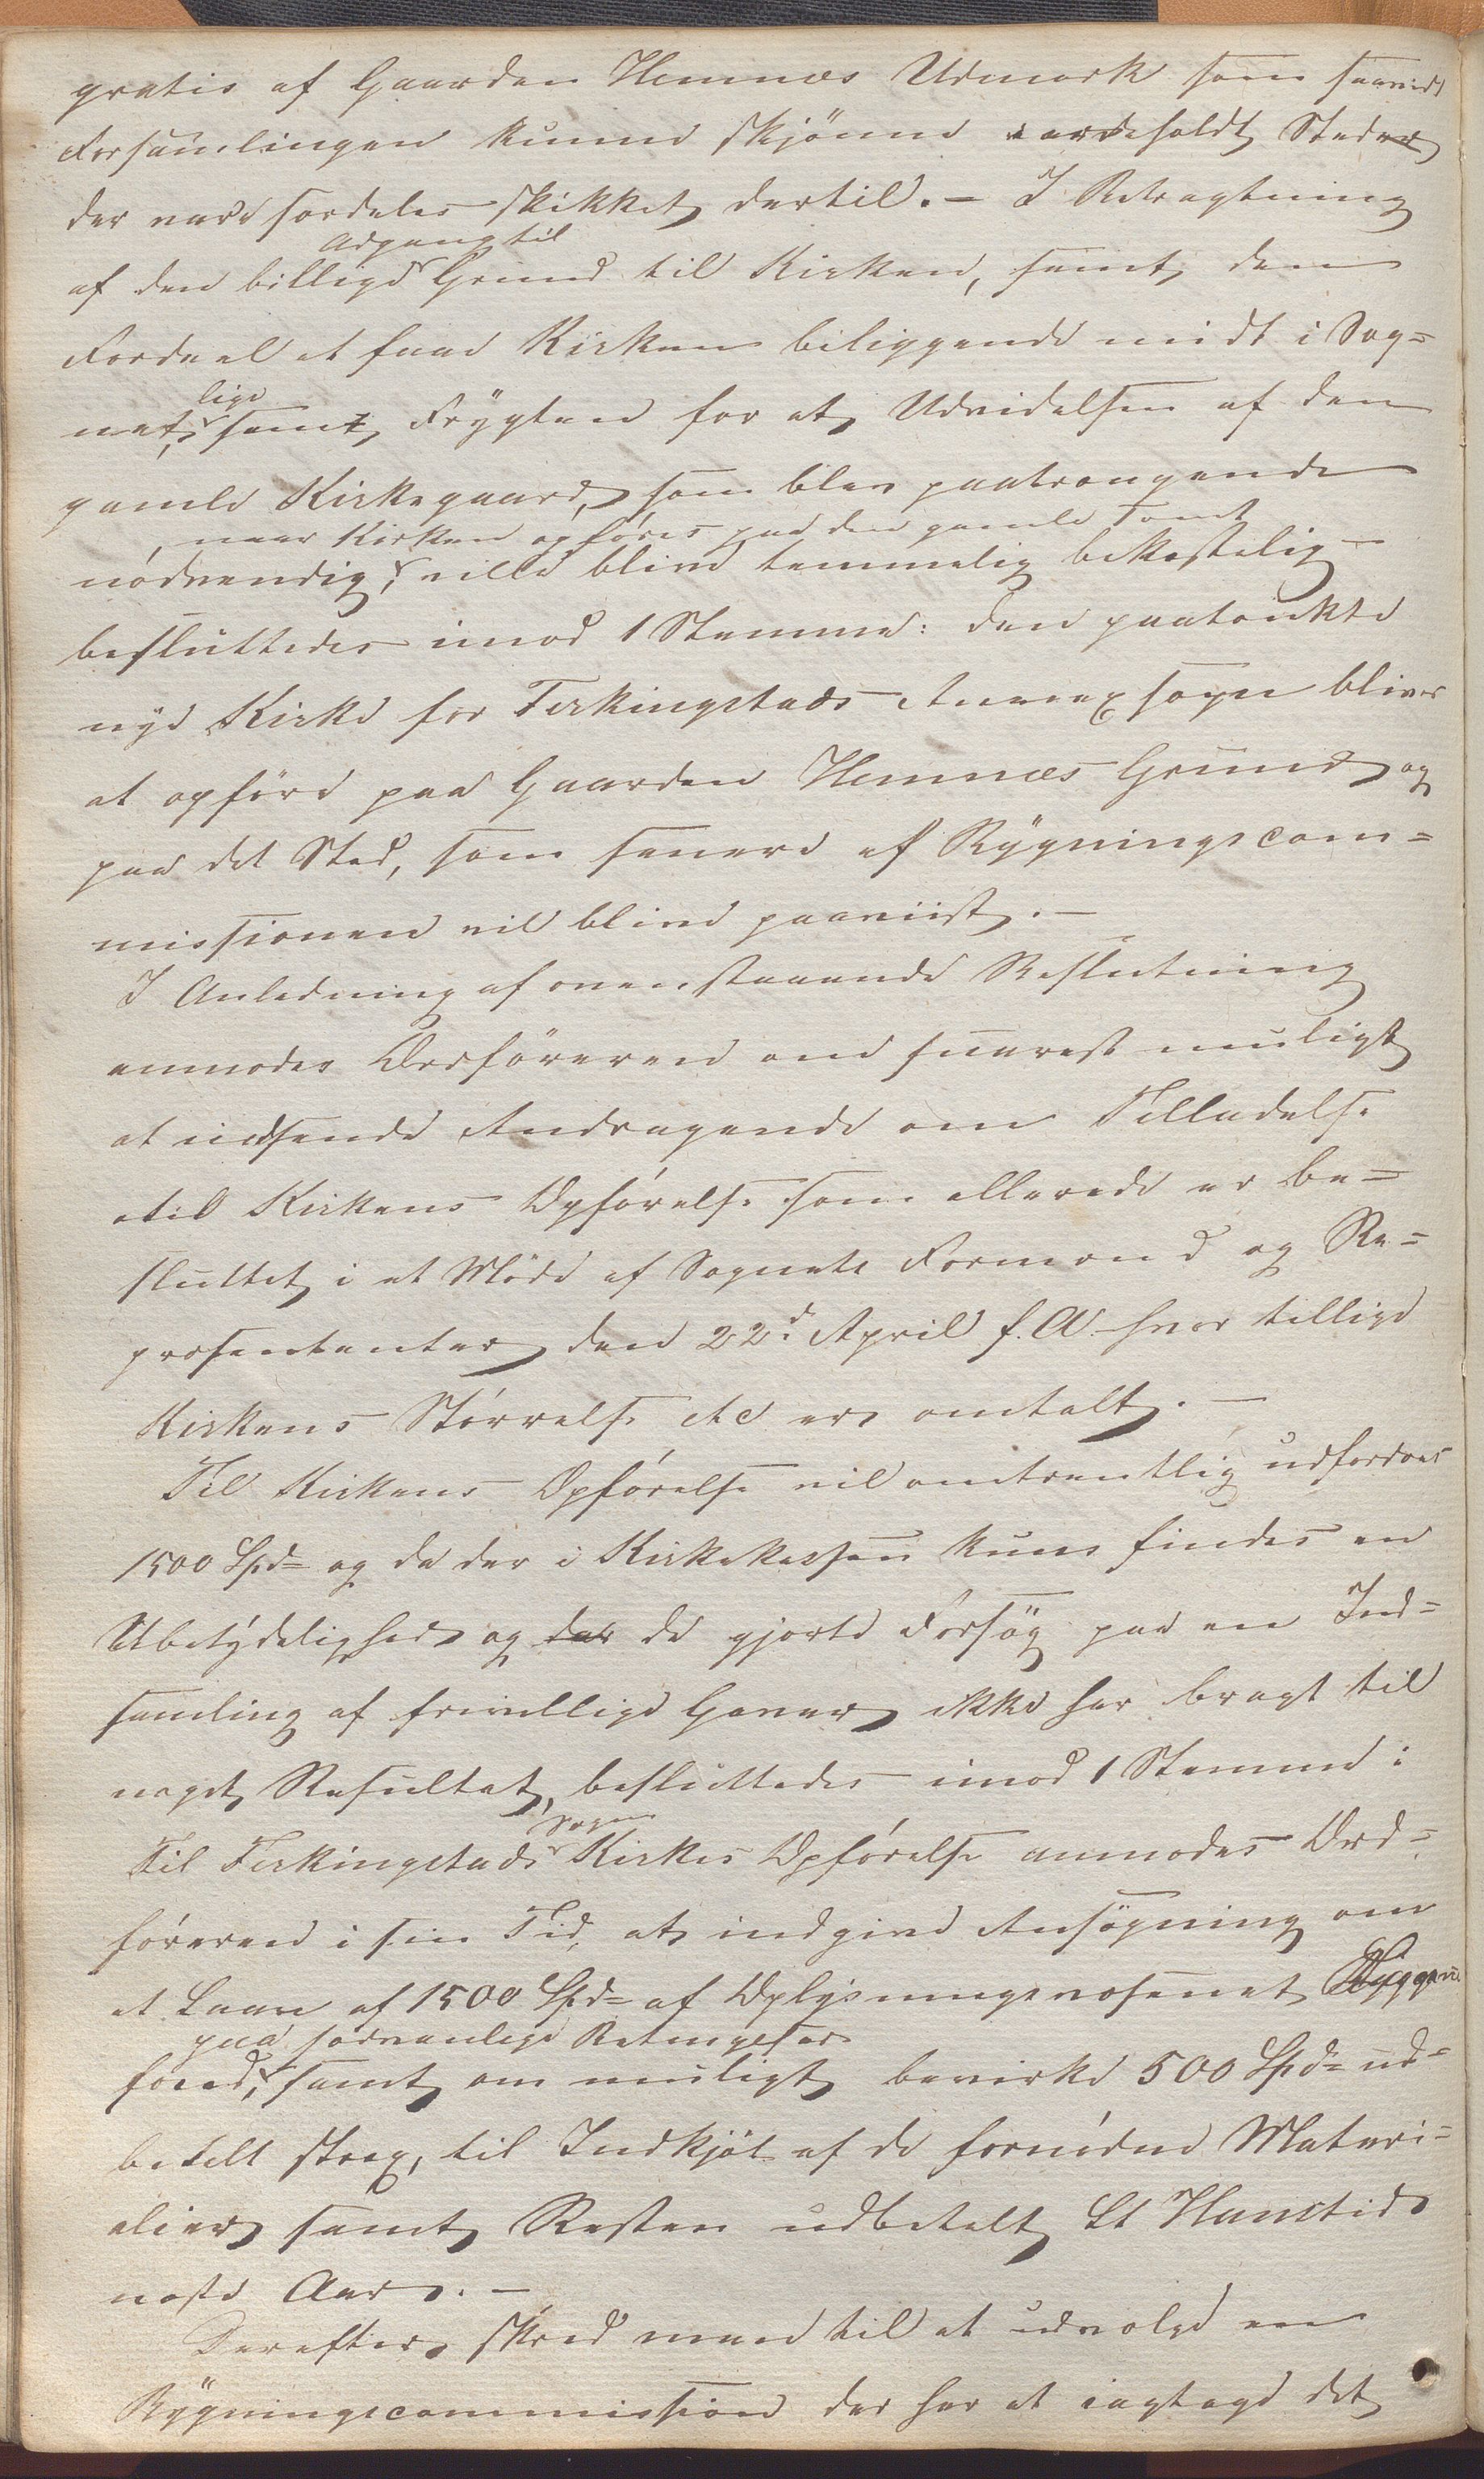 gratis af Gaarden Hemnæs Udmark som saavidt
Forsamlingen kunne skjönne indeholdt Steder
der vare særdeles skikket dertil. – I Betragtning
Adgang til
af den billige Grund til Kirken, samt den
Fordeel at faae Kirken beliggende midt i Sog=
lige
net, samt Frygten for at Udvidelsen af den
gamle Kirkegaard, som blev paatrængende
, naar Kirken opföres paa den gamle Tomt
nödvendig, ville blive temmelig bekostelig
besluttedes imod 1 Stemme: den paatænkte
nye Kirke for Ferkingstads Annexsogn bliver
at opföre paa Gaarden Hemnæs Grund og
paa det Sted, som senere af Bygningscom=
missionen vil blive paaviist. –
I Anledning af ovenstaaende Beslutning
anmodes Ordföreren om snarest muligt
at indsende Andragende om Tilladelse
til Kirkens Opförelse som allerede er be=
sluttet i et Möde af Sognets Formænd og Re=
præsentanter den 22d April f. A. hvor tillige
Kirkens Störrelse etc er omtalt. –
Til Kirkens Opförelse vil omtrentlig udfordres
1500 Spd og da der i Kirkekassen kuns findes en
Ubetydelighed og der de gjorte Forsög paa en Ind=
samling af frivillige Gaver ikke har bragt til
noget Resultat, besluttedes imod 1 Stemme:
Sogns
Til Ferkingstads Kirkes Opförelse anmodes Ord=
föreren i sin Tid, at indgive Ansögning om
et Laan af 1500 Spd af Oplysningsvæsenet
paa sædvanlige Betingelser
fond, samt om muligt bevirke 500 Spd ud=
betalt strax, til Indkjöb af de fornödne Materi=
alier samt Resten udbetalt St Hanstid
næste Aar. –
Derefter skred man til at udvælge en
Bygningscommission der har at iagtage det